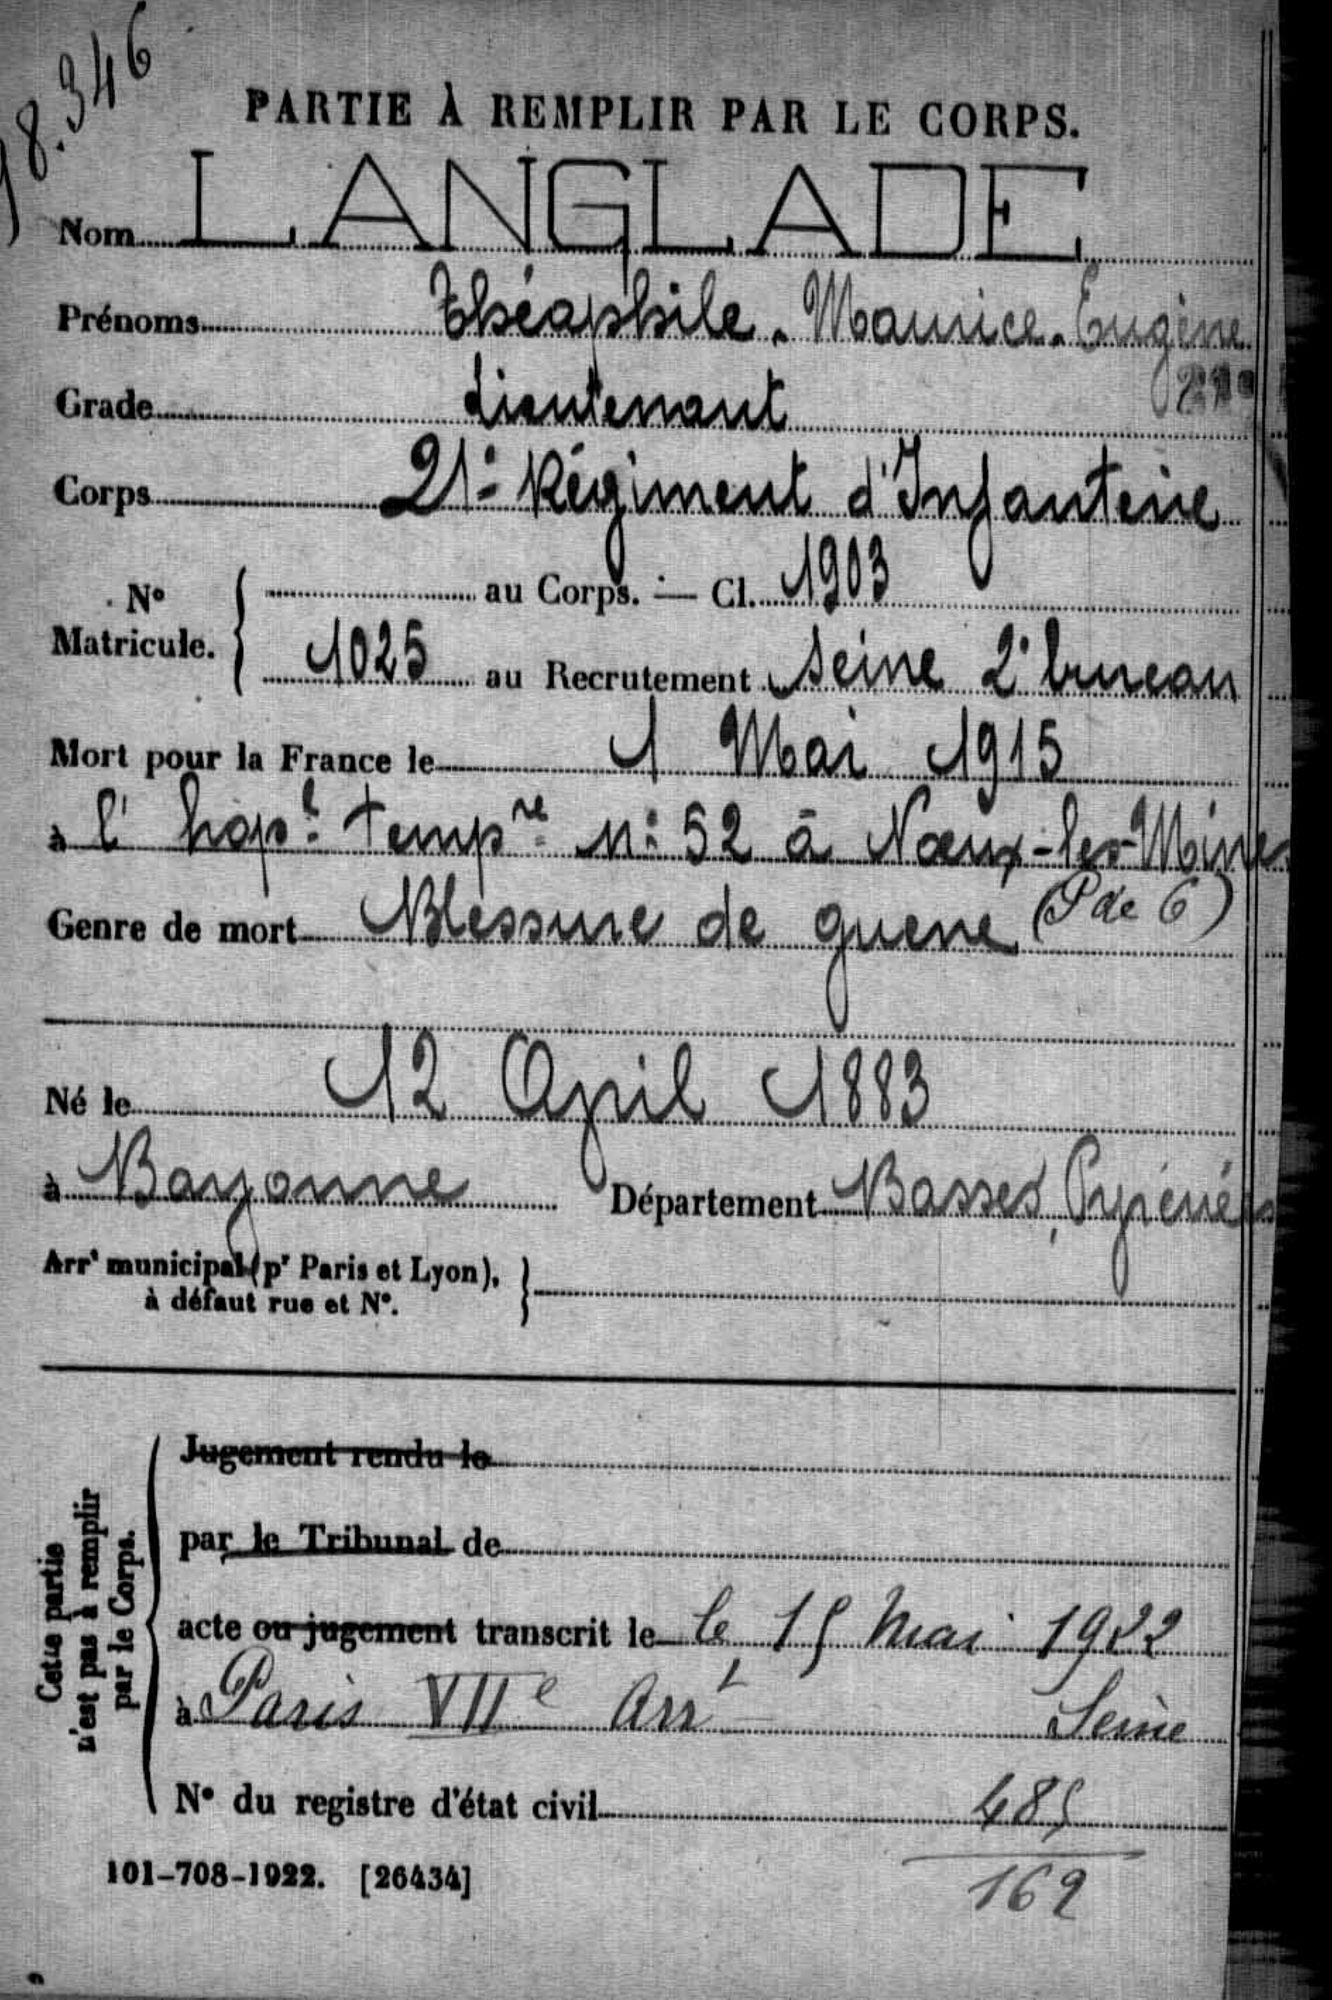 8.346
PARTIE À REMPLIR PAR LE CORPS.
Nom LANGLADE
Prénoms Théophile. Maurice. Eugène
Grade Lieutenant
Corps 21e Régiment d'Infanterie
No Matricule. { au Corps. — Cl. 1903
1025 au Recrutement Seine 2e bureau
Mort pour la France le 1 Mai 1915
à l' hopl tempre No 52 à Noeux-les-Mines
Genre de mort Blessure de guerre (P de C)
Né le 12 April 1883
à Bayonne Département Basses Pyrénées
Arrt municipal (pr Paris et Lyon),
à défaut rue et No. }
Cette partie
n'est pas à remplir
par le Corps.
Jugement rendu le
par le Tribunal de
acte ou jugement transcrit le le 15 Mai 1922
à Paris VIIe Arrt Seine
No du registre d'état civil 485
169
101-708-1922. [26434]